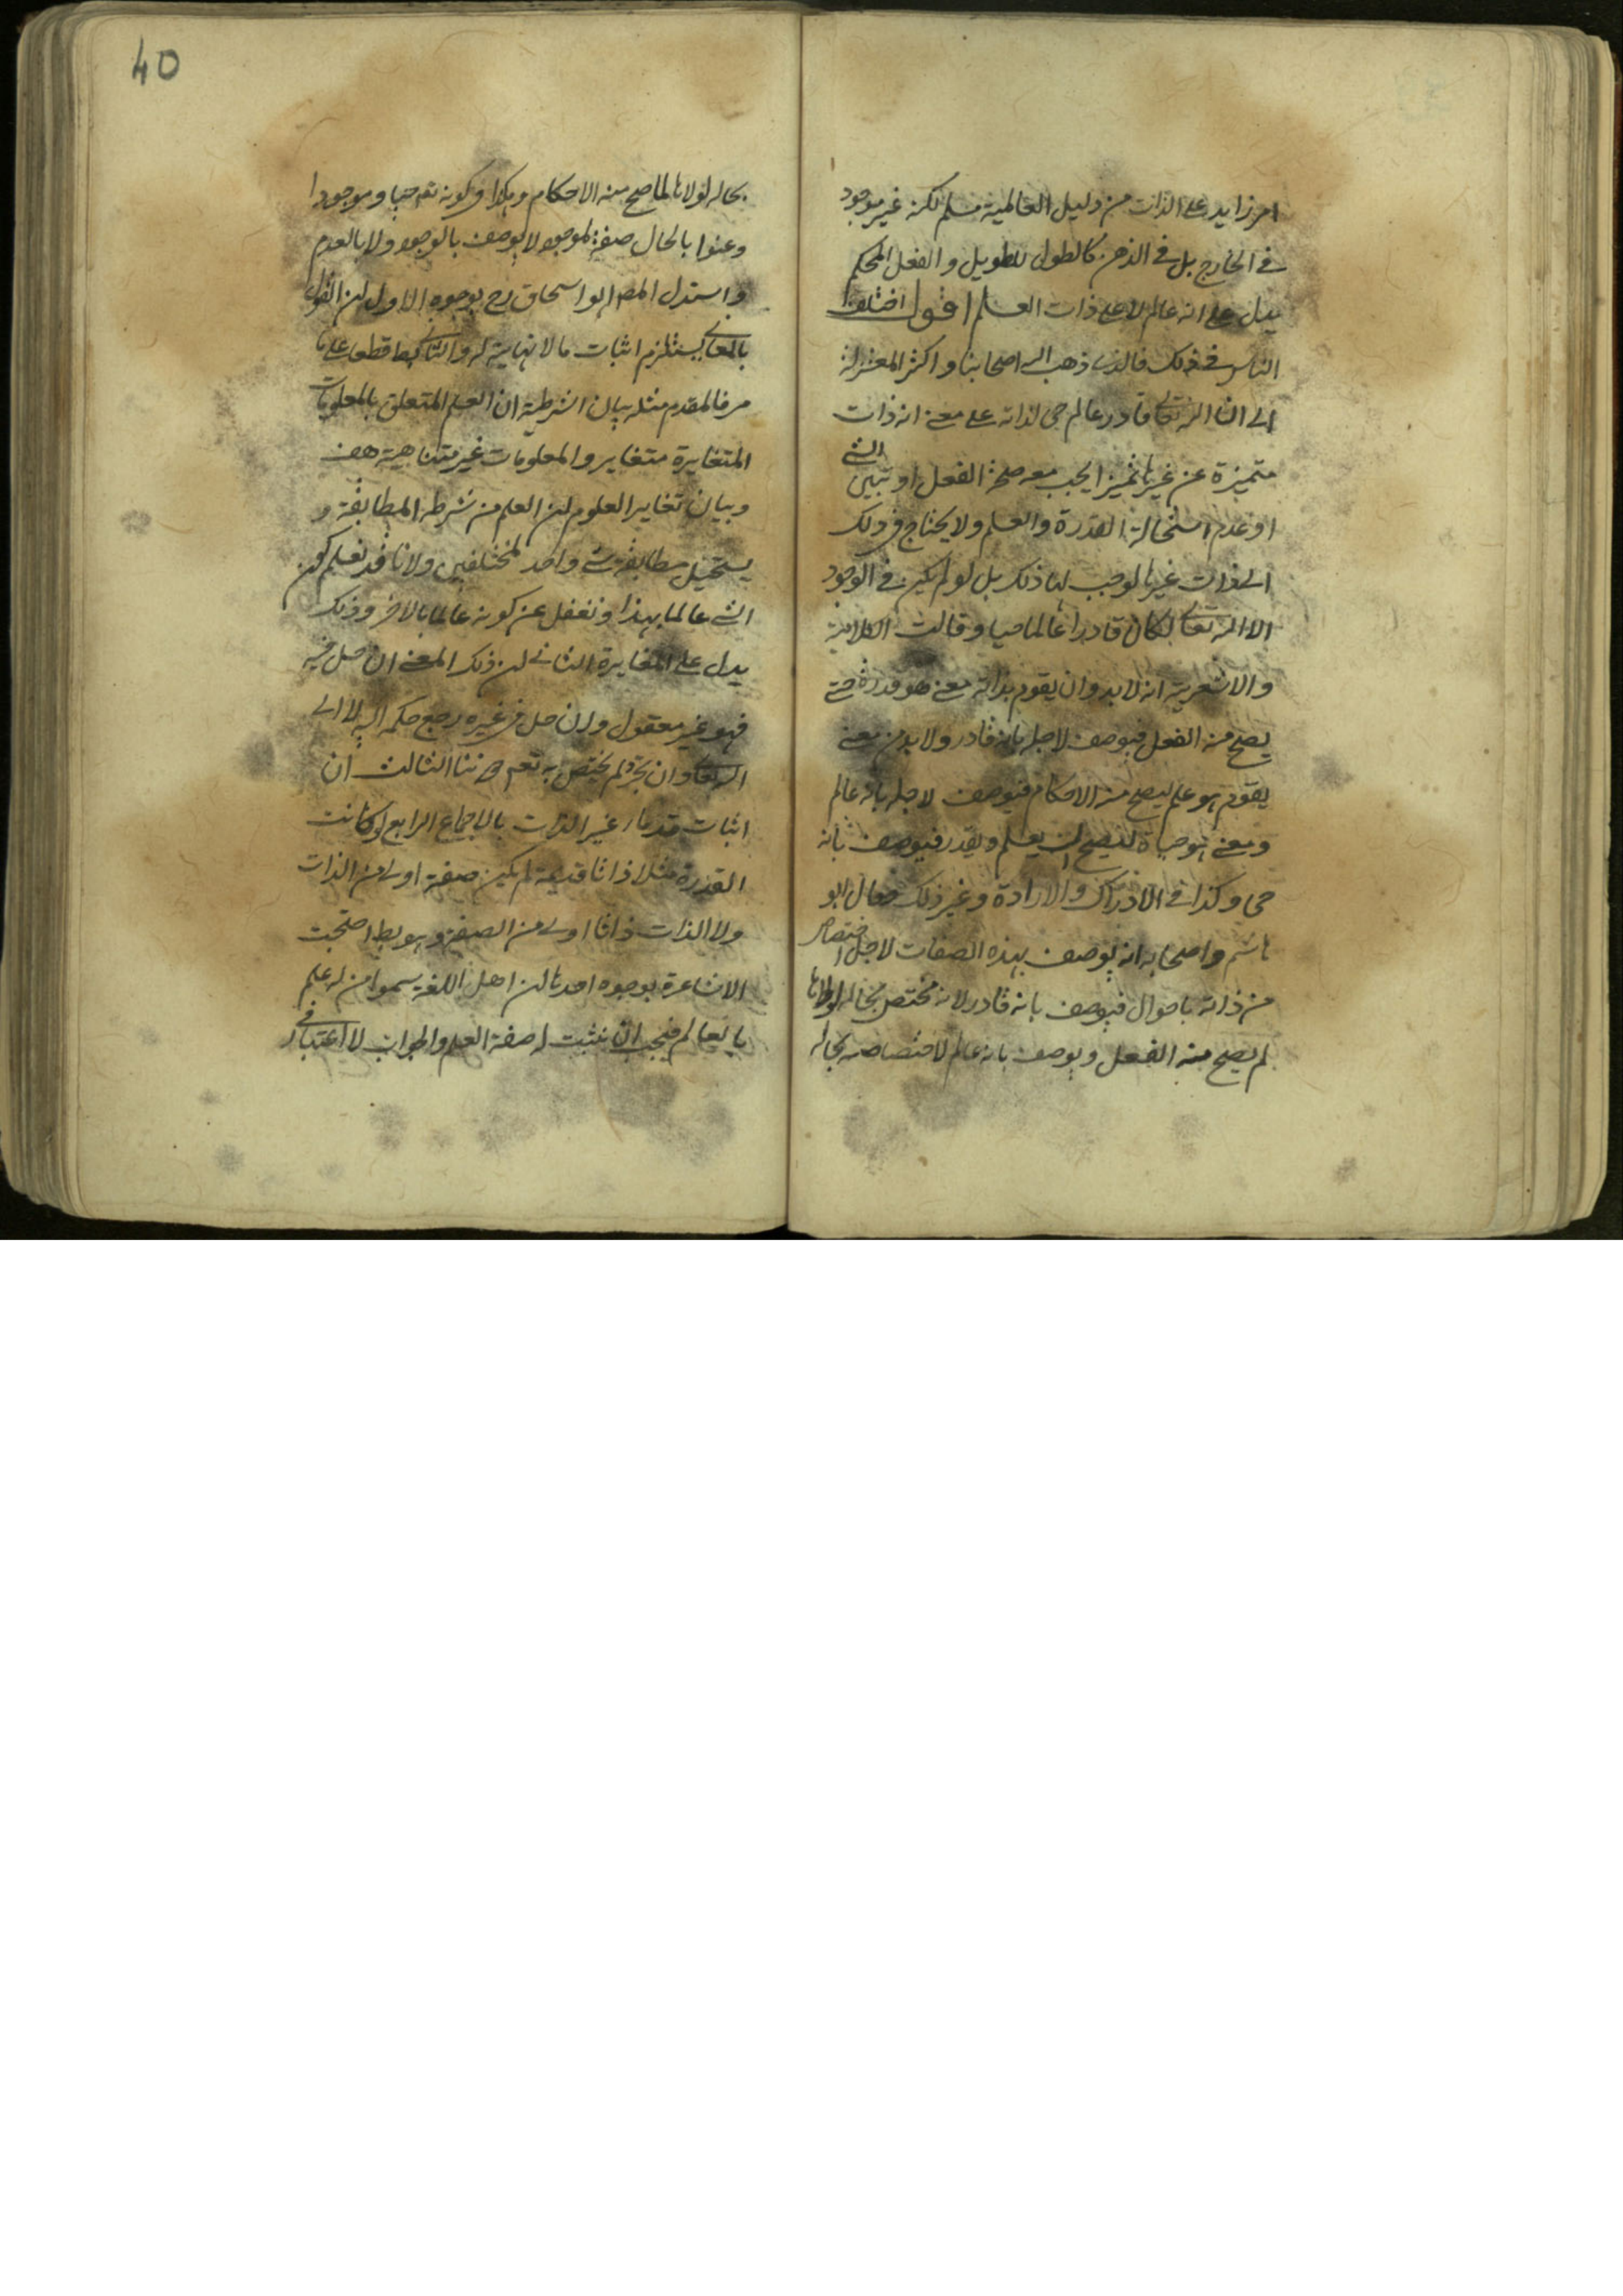 امر زايد على الذات من دليل العالمية مسلم لكنه غير موجود
في الخارج بل في الذهن كالطول للطويل والفعل المحكم
يدل على انه عالم لا على ذات العلم اقول اختلف
الناس في ذلك فالذى ذهب اليه اصحابنا واكثر المعتزلة
الى ان الله تعالى قادر عالم حى لذاته على معنى انه ذات
متميزة عن غيرها تميزا يجب معه صحة الفعل او تبين الشئ
او عدم استحالة القدرة والعلم ولا يحتاج في ذلك
الى ذات غيرها لوجب لها ذلك بل لو لم يكن في الوجود
الا الله تعالى لكان قادرا عالما حيا وقالت الكلابية
والاشعرية انه لا بد وان يقوم بذاته معنى هو قدرة حتى
يصح منه الفعل فيوصف لاجله بانه قادر ولا بد من معنى
يقوم هو علم ليصح منه الاحكام فيوصف لاجله بانه عالم
ومعنى هو حياة ليصح ان يعلم ويقدر فيوصف بانه
حى وكذا في الادراك والارادة وغير ذلك فقال ابو
هاشم واصحابه انه يوصف بهذه الصفات لاجل اختصاص
من ذاته باحوال فيوصف بانه قادر لانه مختص بحالة لولاها
لم يصح منه الفعل ويوصف بانه عالم لاختصاصه بحالة
40
بحالة لولاها لما صح منه الاحكام وهكذا في كونه تعم حيا وموجودا
وعنوا بالحال صفة لموجود لا يوصف بالوجود ولا بالعدم
واستدل المصم ابو اسحاق رح بوجوه الاول ان القول
بالمعانى يستلزم اثبات ما لا نهاية له والتالى بط قطعا على ما
مر فالمقدم مثله بيان الشرطية ان العلم المتعلق بالمعلومات
المتغايرة متغاير والمعلومات غير متناهية هف
وبيان تغاير العلوم لان العلم من شرطه المطابقة و
يستحيل مطابقة شئ واحد لمختلفين ولانا قد نعلم كون
الشئ عالما بهذا ونغفل عن كونه عالما بالاخر وذلك
يدل على المغايرة الثانى لان ذلك المعنى ان حل فيه
فهو غير معقول وان حل في غيره رجع حكمه اليه لا الى
الله تعالى وان تجرد لم يختص به تعم الثالث ان
اثبات قدماء غير الذات بط بالاجماع الرابع لو كانت
القدرة مثلا ذاتا قديمة لم يكن صفة اولى من الذات
ولا الذات ذاتا اولى من الصفة وهو بط احتجت
الاشاعرة بوجوه احدها لان اهل اللغة سموا من له علم
بالعالم فيجب ان نثبت له صفة العلم والجواب لا اعتبار في